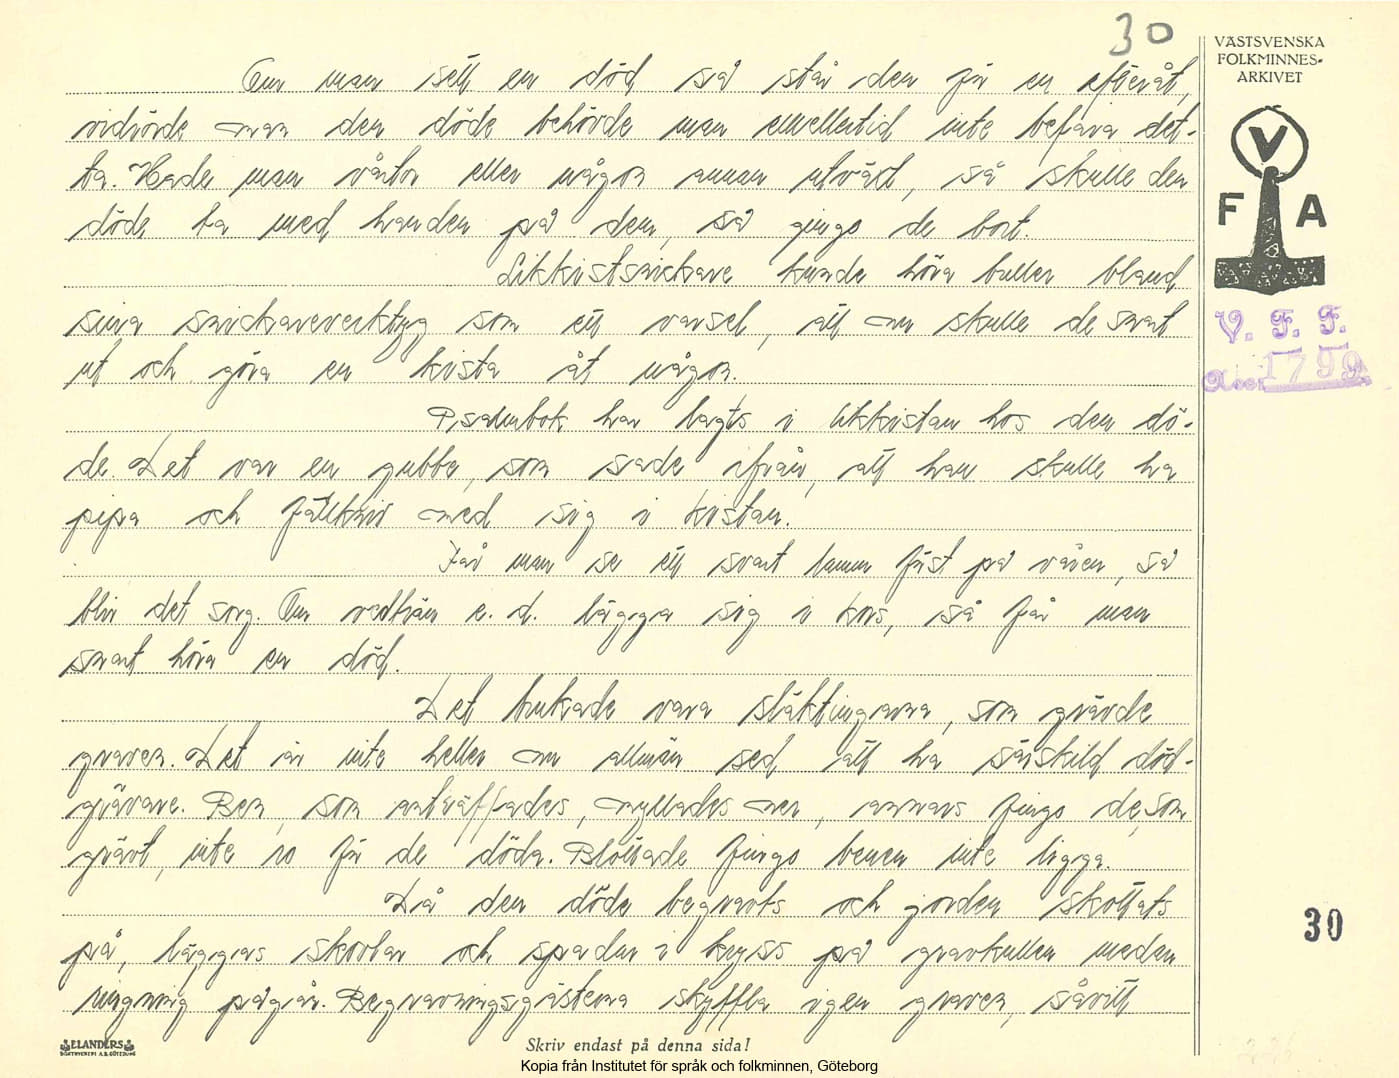 30
VÄSTSVENSKA
FOLKMINNES-
ARKIVET
Om man sett en död så står den för en efteråt,
vidrörde man den döde behövde man emellertid inte befara det-
ta. Hade man vårtor eller någon annan utväxt, så skulle den
döde ta med handen på dem, så gingo de bort.
Likkistsnickare kunde höra buller bland
sina snickareverktyg som ett varsel, att nu skulle de snart
ut och göra en kista åt någon.
Psalmbok har lagts i likkistan hos den dö-
de. Det var en gubbe, som sade ifrån, att han skulle ha
pipa och fällkniv med sig i kistan.
Får man se ett svart lamm först på våren, så
blir det sorg. Om vedträn e. d. lägga sig i kors, så får man
snart höra en död.
Det brukade vara släktingarna, som grävde
graven. Det är inte heller nu allmän sed att ha särskild död-
grävare. Ben, som anträffades, myllades ner, annars fingo de, som
grävt, inte ro för de döda. Blottade fingo benen inte ligga.
Då den döde begravts och jorden skottats
på, läggas skovlar och spadar i kryss på gravkullen medan
ringning pågår. Begravningsgästerna skyffla igen graven, såvitt
V
F A
V. F. F.
Acc. 1799
30
ELANDERS
BOKTRYCKERI A.B. GÖTEBORG
Skriv endast på denna sida!
Kopia från Institutet för språk och folkminnen, Göteborg